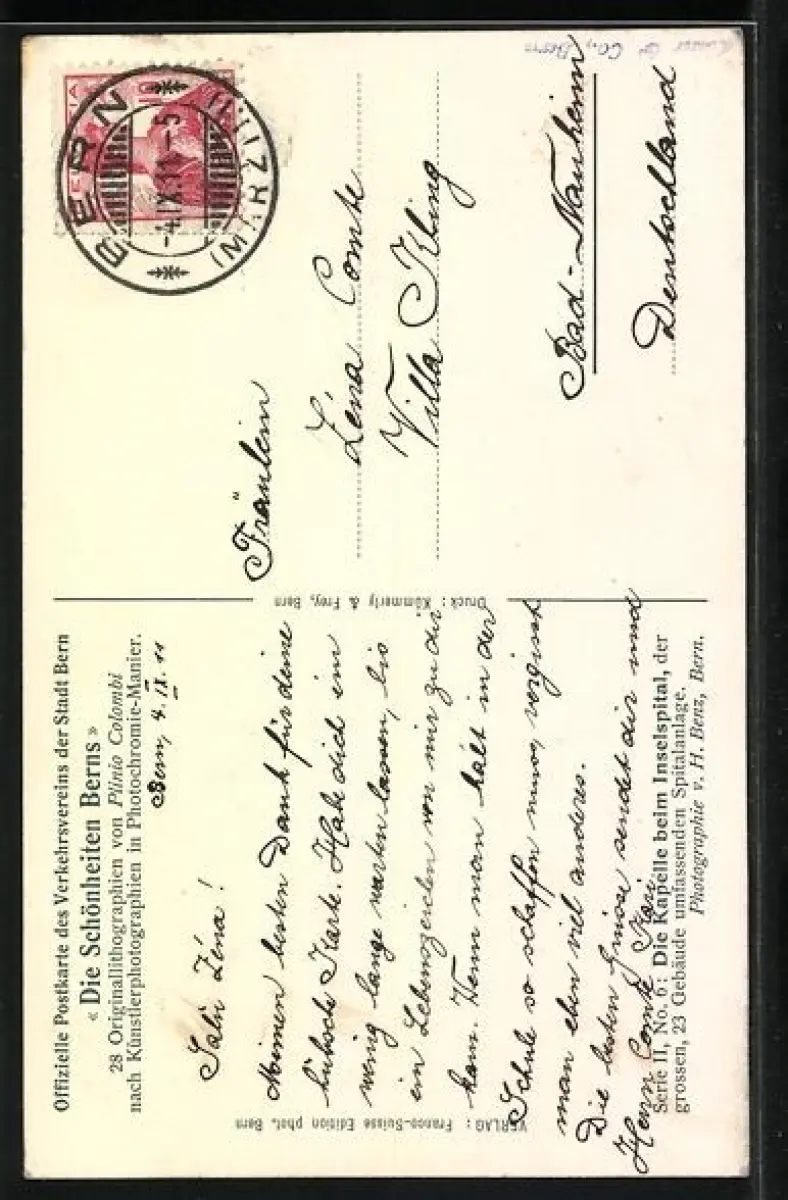 Offizielle Postkarte des Verkehrsvereins der Stadt Bern
« Die Schönheiten Berns »
28 Originallithographien von Plinio Colombi
nach Künstlerphotographien in Photochromie-Manier.
Bern, 4. IX. 11
Salü Léna!
Meinen besten Dank für deine
hübsche Karte. Habe dich ein
wenig lange warten lassen, bis
ein Lebenszeichen von mir zu dir
kam. Wenn man hält in der
Schule so schaffen muss, vergisst
man eben viel anderes.
Die besten Grüsse sendet dir und
Herrn Comte
Serie II, No. 6: Die Kapelle beim Inselspital, der
grossen, 23 Gebäude umfassenden Spitalanlage.
Photographie v. H. Benz, Bern.
VERLAG: Franco-Suisse Edition phot. Bern
Druck: Kümmerly & Frey, Bern
BERN
-4.IX.11-5
(MARZILI)
10
Fräulein
Léna Comte
Villa Kling
Bad-Nauheim
Deutschland
Co., Bern